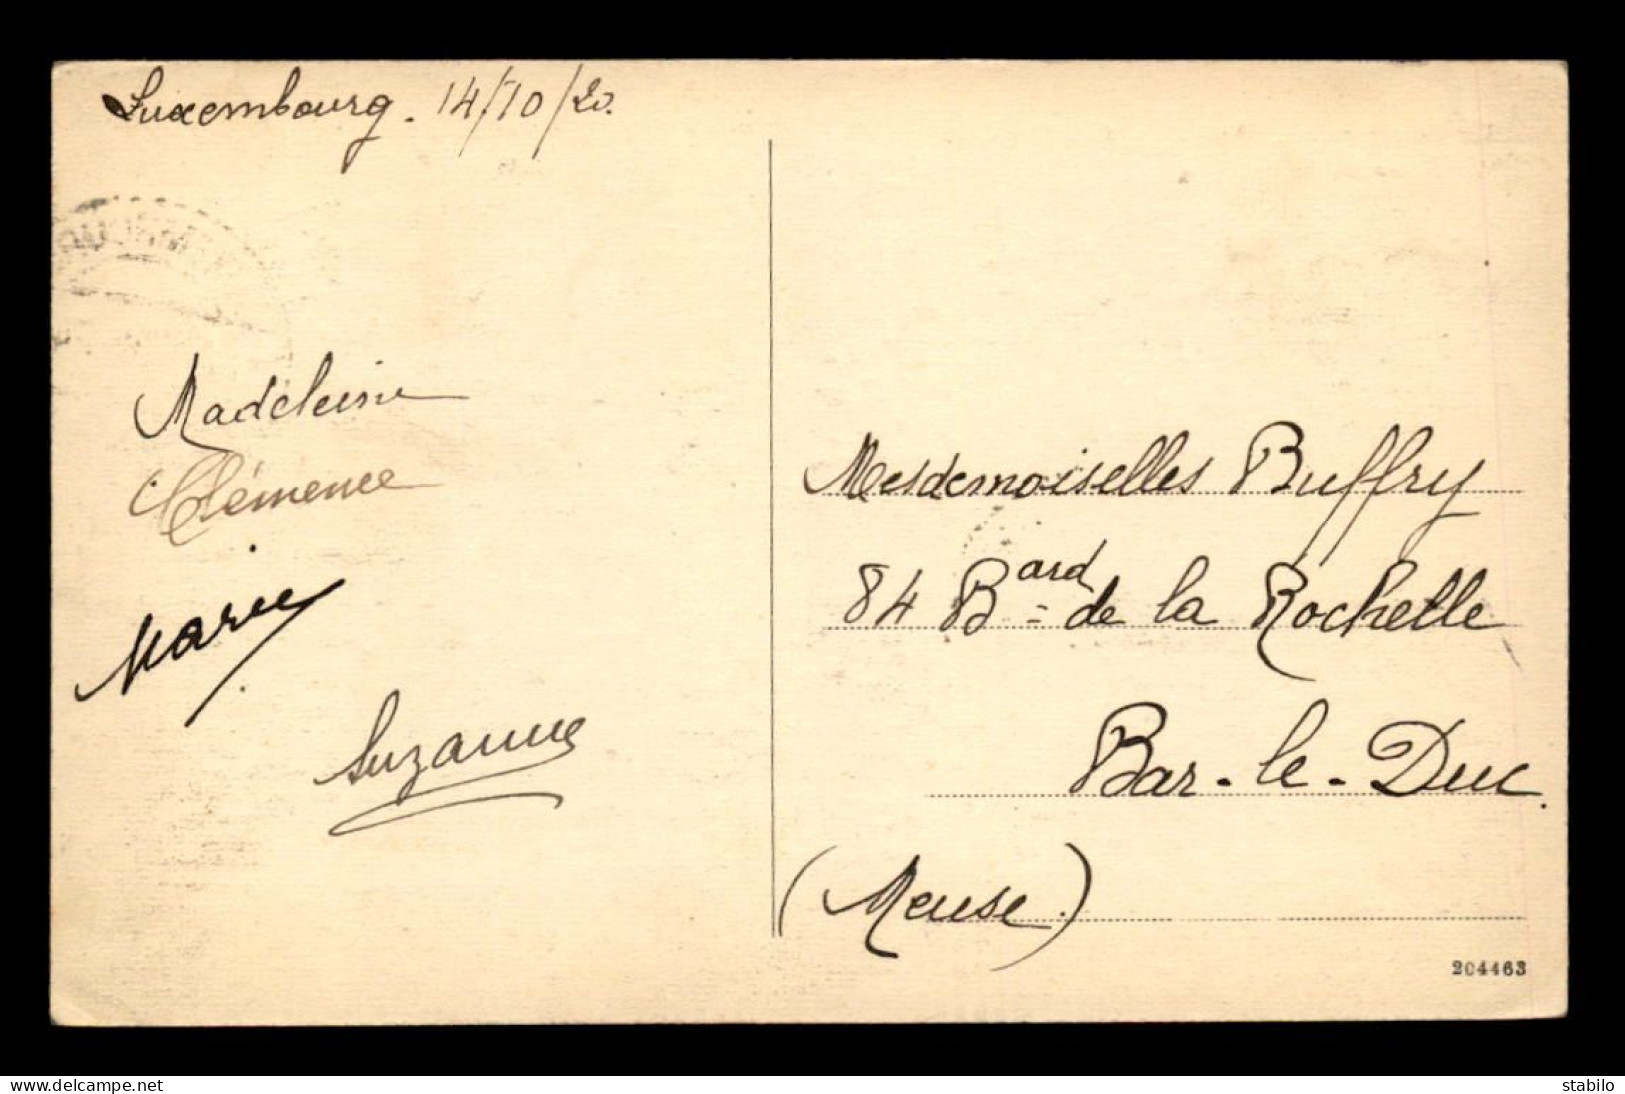 Luxembourg. 14/10/20.
Madeleine
Clémence
Marie
Suzanne
Mesdemoiselles Buffry
84 Bard de la Rochelle
Bar-le-Duc.
(Meuse.)
204463
www.delcampe.net
stabilo